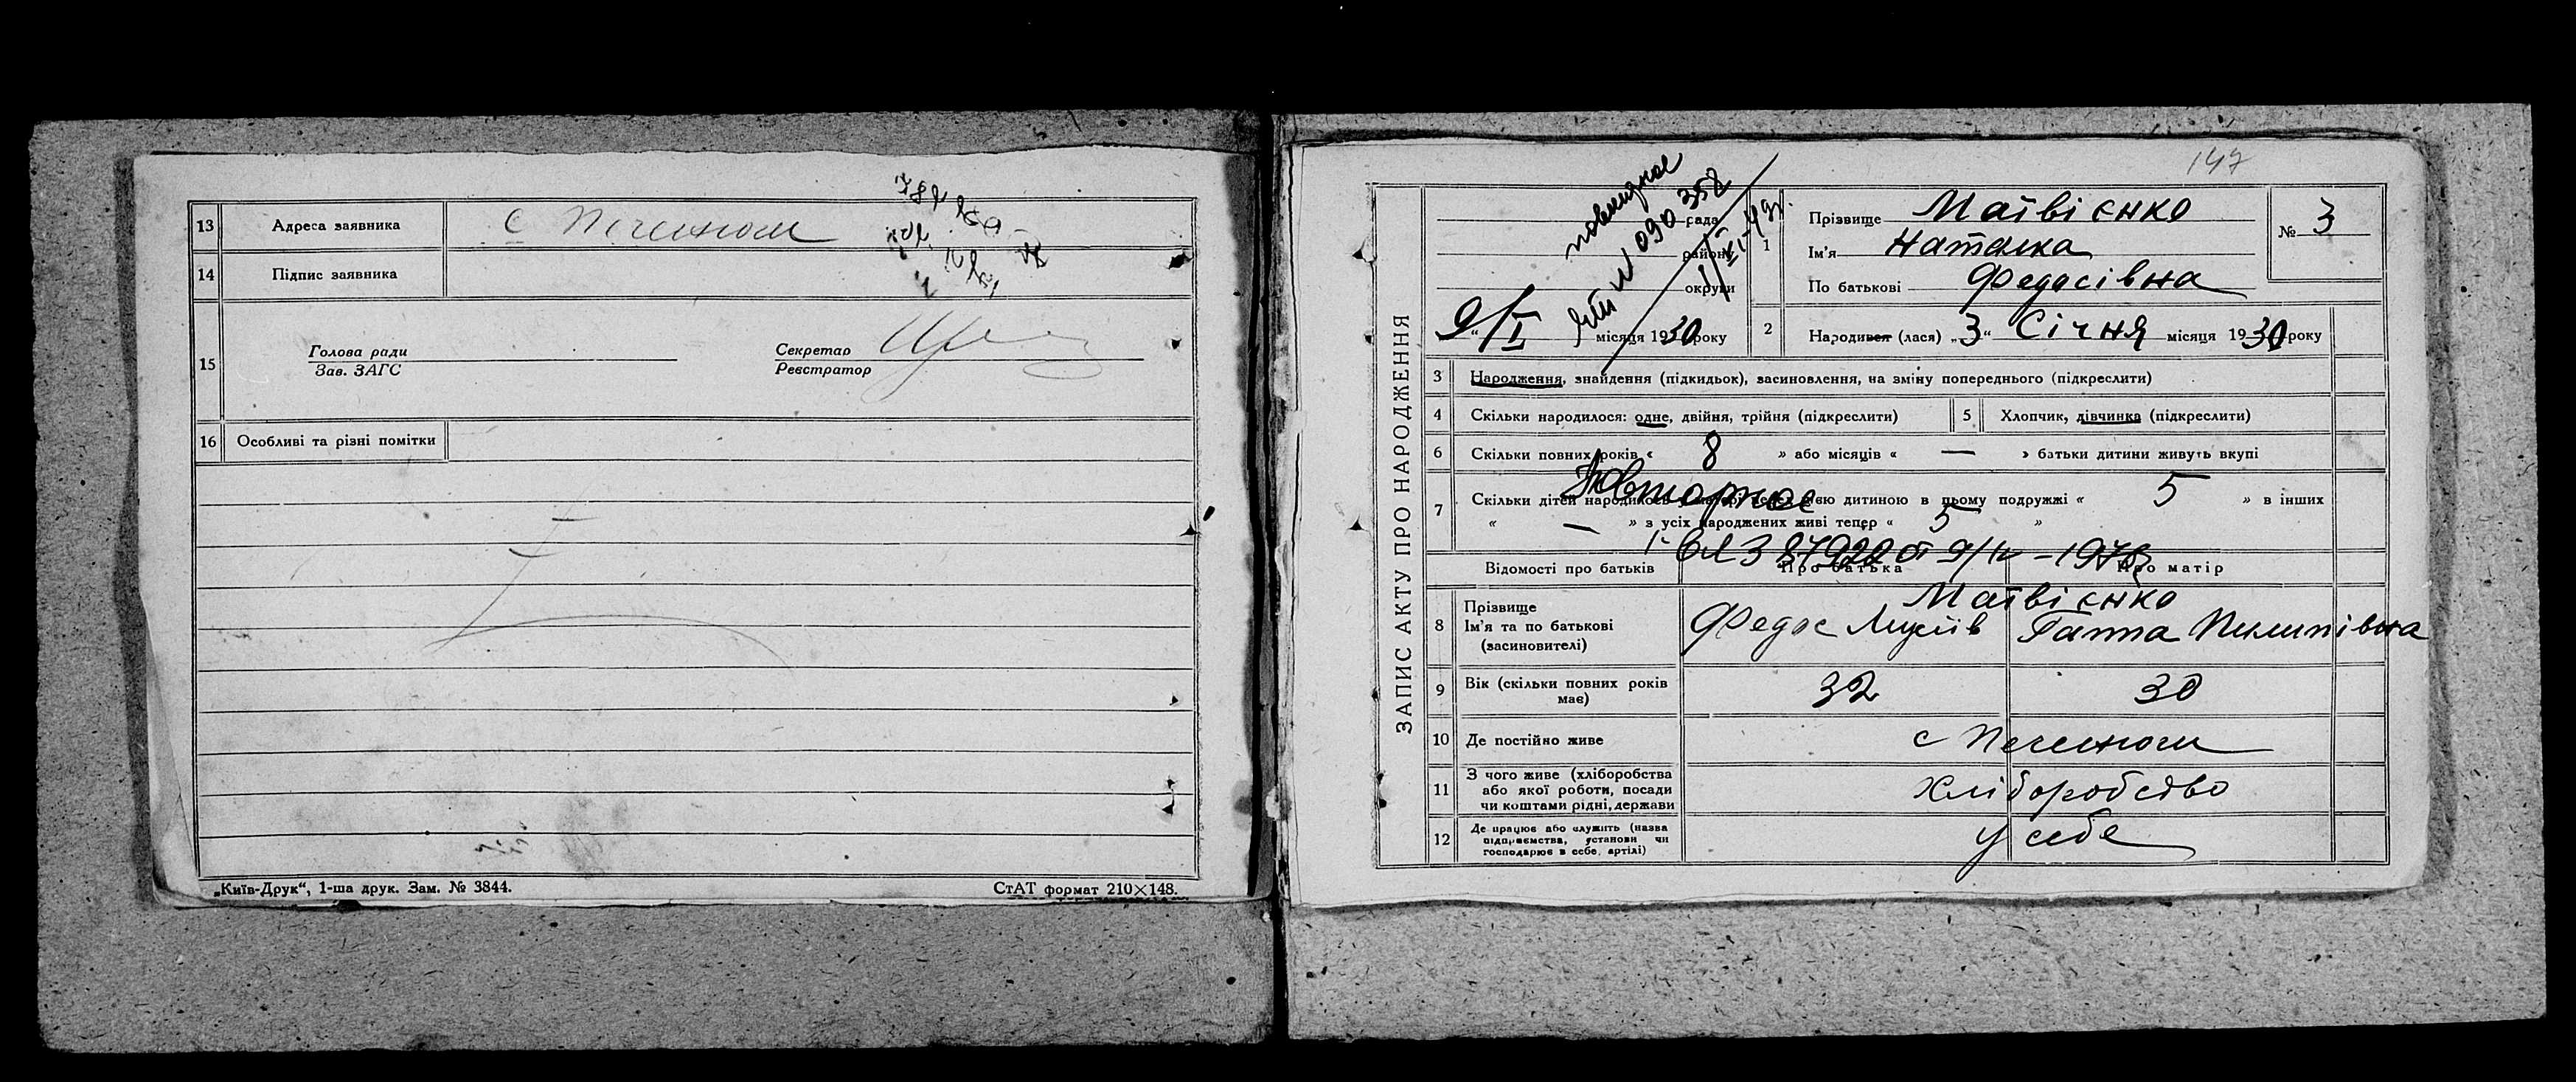 13 Адреса заявника с
14 Підпис заявника
15 Голова ради Секретар
Зав. ЗАГС Реєстратор
16 Особливі та різні помітки
„Київ-Друк“, 1-ша друк. Зам. № 3844. СтАТ формат 210×148.
147
ЗАПИС АКТУ ПРО НАРОДЖЕННЯ
рада
району
округи
№ 090358
9/I місяця 1930 року
1 Прізвище Матвієнко
Ім'я Наталка
По батькові Федосівна
№ 3
2 Народився (лася) „3“ Січня місяця 1930 року
3 Народження, знайдення (підкидьок), засиновлення, на зміну попереднього (підкреслити)
4 Скільки народилося: одне, двійня, трійня (підкреслити) 5 Хлопчик, дівчинка (підкреслити)
6 Скільки повних років « 8 » або місяців « — » батьки дитини живуть вкупі
7 Скільки дітей народилось дитиною в цьому подружжі « 5 » в інших
Повторное
« — » з усіх народжених живі тепер « 5 »
Відомості про батьків Про батька Про матір
8 Прізвище Матвієнко
Ім'я та по батькові Федос Ганна Пилипівна
(засиновителі)
9 Вік (скільки повних років має) 32 30
10 Де постійно живе с
11 З чого живе (хліборобства
або якої роботи, посади
чи коштами рідні, держави Хліборобство
12 Де працює або служить (назва
підприємства, установи чи
господарює в себе, артілі) у себе